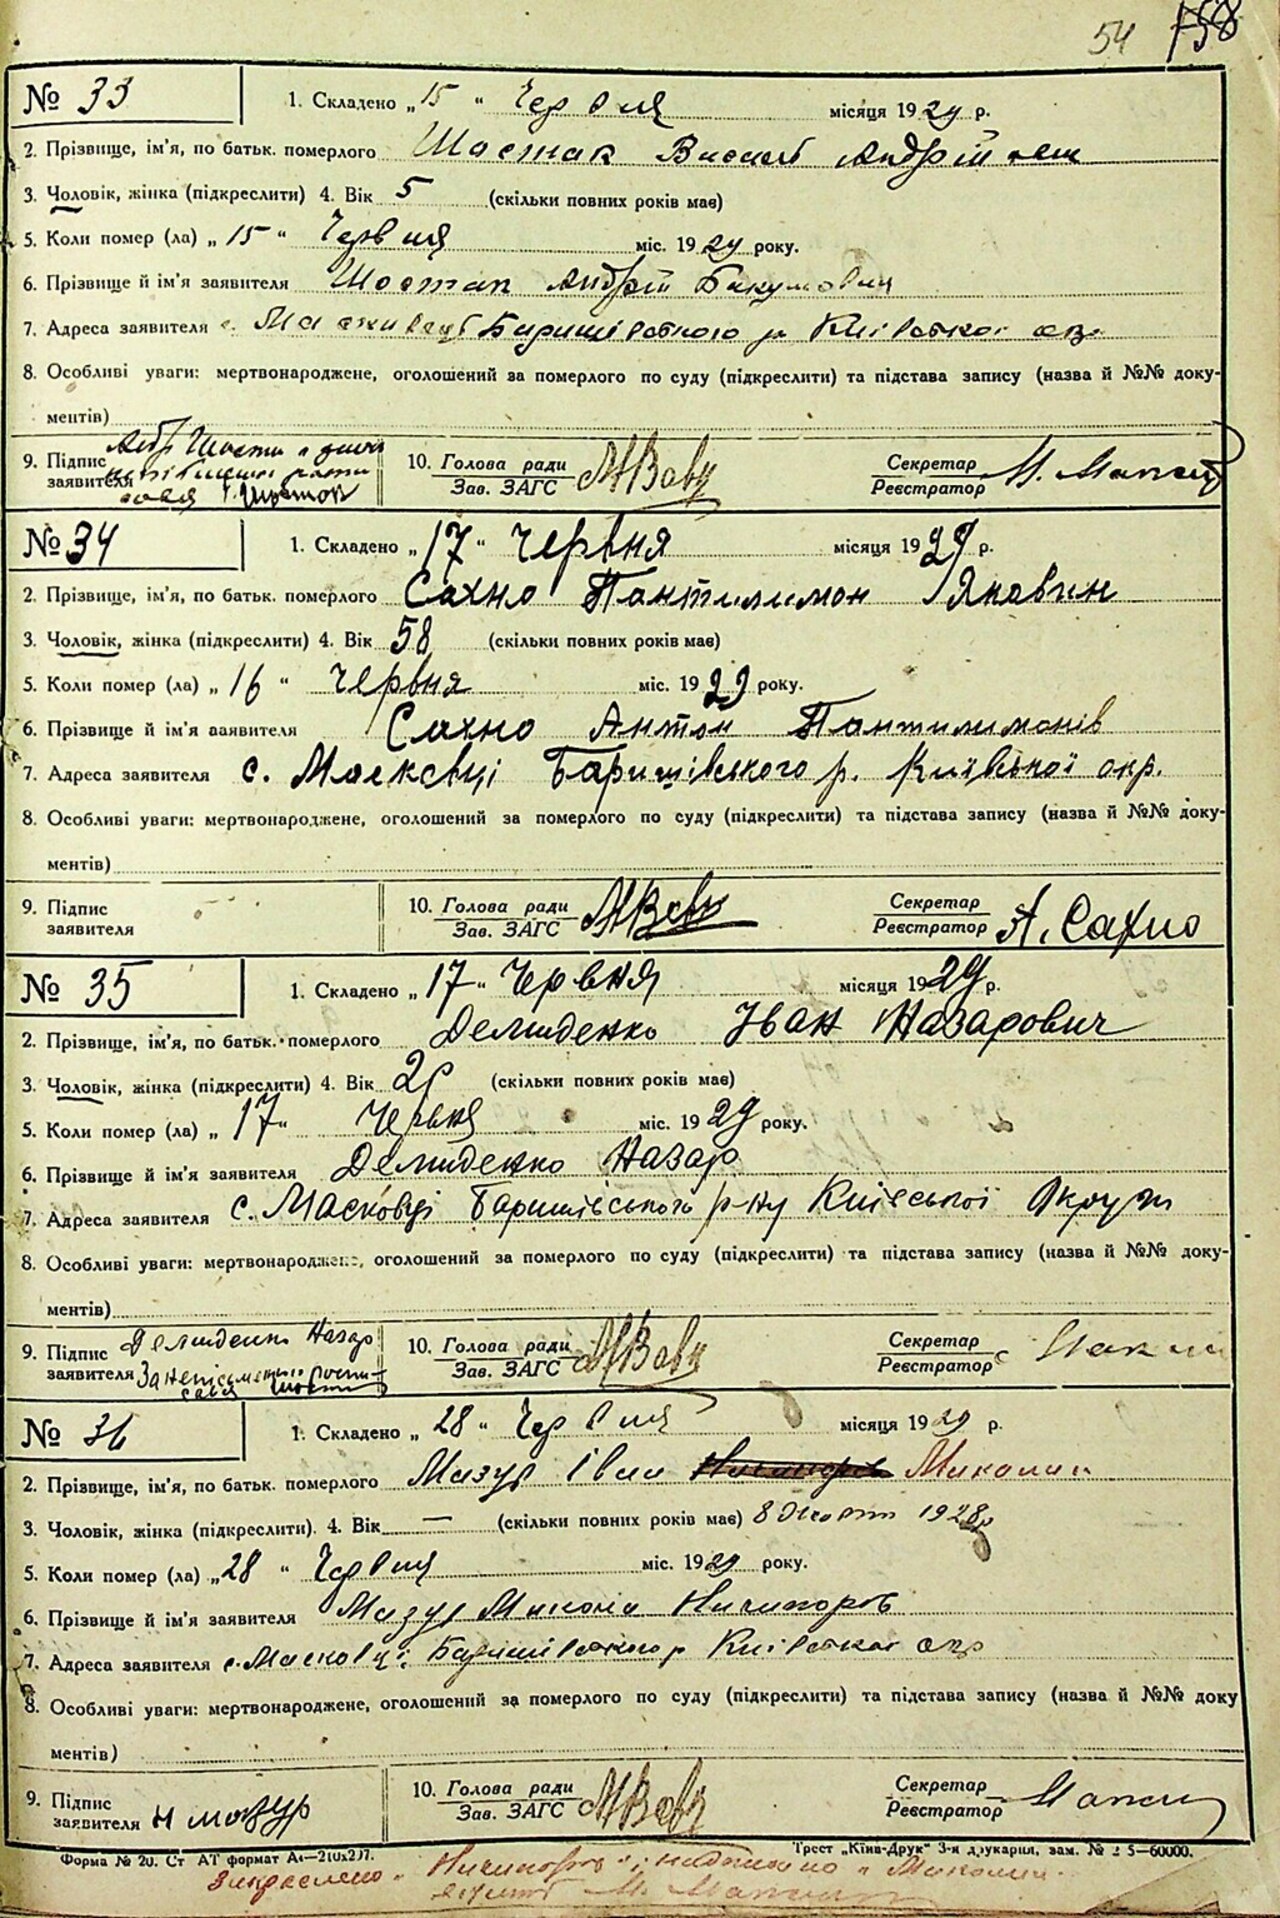 54 158
№ 33 1. Складено „ 15 “ Червня місяця 1929 р.
2. Прізвище, ім'я, по батьк. померлого Шостак Василь Андрій
3. Чоловік, жінка (підкреслити) 4. Вік 5 (скільки повних років має)
5. Коли помер (ла) „ 15 “ Червня міс. 1929 року.
6. Прізвище й ім'я заявителя Шостак Андрій
7. Адреса заявителя с. Баришівського р Київської окр
8. Особливі уваги: мертвонароджене, оголошений за померлого по суду (підкреслити) та підстава запису (назва й №№ доку-
ментів)
9. Підпис заявителя 10. Голова ради Зав. ЗАГС Секретар Реєстратор
№ 34 1. Складено „ 17 “ Червня місяця 1929 р.
2. Прізвище, ім'я, по батьк. померлого Сахно Пантилимон Яковин
3. Чоловік, жінка (підкреслити) 4. Вік 58 (скільки повних років має)
5. Коли помер (ла) „ 16 “ Червня міс. 1929 року.
6. Прізвище й ім'я заявителя Сахно Антон Пантилимонів
7. Адреса заявителя с. Масківці Баришівського р. Київської окр.
8. Особливі уваги: мертвонароджене, оголошений за померлого по суду (підкреслити) та підстава запису (назва й №№ доку-
ментів)
9. Підпис заявителя 10. Голова ради Зав. ЗАГС Секретар Реєстратор А. Сахно
№ 35 1. Складено „ 17 “ Червня місяця 1929 р.
2. Прізвище, ім'я, по батьк. померлого Демиденко Іван Назарович
3. Чоловік, жінка (підкреслити) 4. Вік (скільки повних років має)
5. Коли помер (ла) „ 17 “ Червня міс. 1929 року.
6. Прізвище й ім'я заявителя Демиденко Назар
7. Адреса заявителя с. Масковці Баришівського р-ну Київської Округи
8. Особливі уваги: мертвонароджене, оголошений за померлого по суду (підкреслити) та підстава запису (назва й №№ доку-
ментів)
9. Підпис заявителя Демиденко Назар 10. Голова ради Зав. ЗАГС Секретар Реєстратор
За неписьменного
№ 36 1. Складено „ 28 “ Червня місяця 1929 р.
2. Прізвище, ім'я, по батьк. померлого Мазур Іван Миколин
3. Чоловік, жінка (підкреслити). 4. Вік — (скільки повних років має) 8 Жовтн 1928 р
5. Коли помер (ла) „ 28 “ Червня міс. 1929 року.
6. Прізвище й ім'я заявителя Мазур Микола Ничипорів
7. Адреса заявителя с. Масковці Баришівського р Київської окр
8. Особливі уваги: мертвонароджене, оголошений за померлого по суду (підкреслити) та підстава запису (назва й №№ доку
ментів)
9. Підпис заявителя Н мазур 10. Голова ради Зав. ЗАГС Секретар Реєстратор
Форма № 20. Ст АТ формат А4—210х297. Трест „Київ-Друк“ 3-я друкарня, зам. № 5—60000.
Закреслено „Ничипорів“ надписано „Миколин“